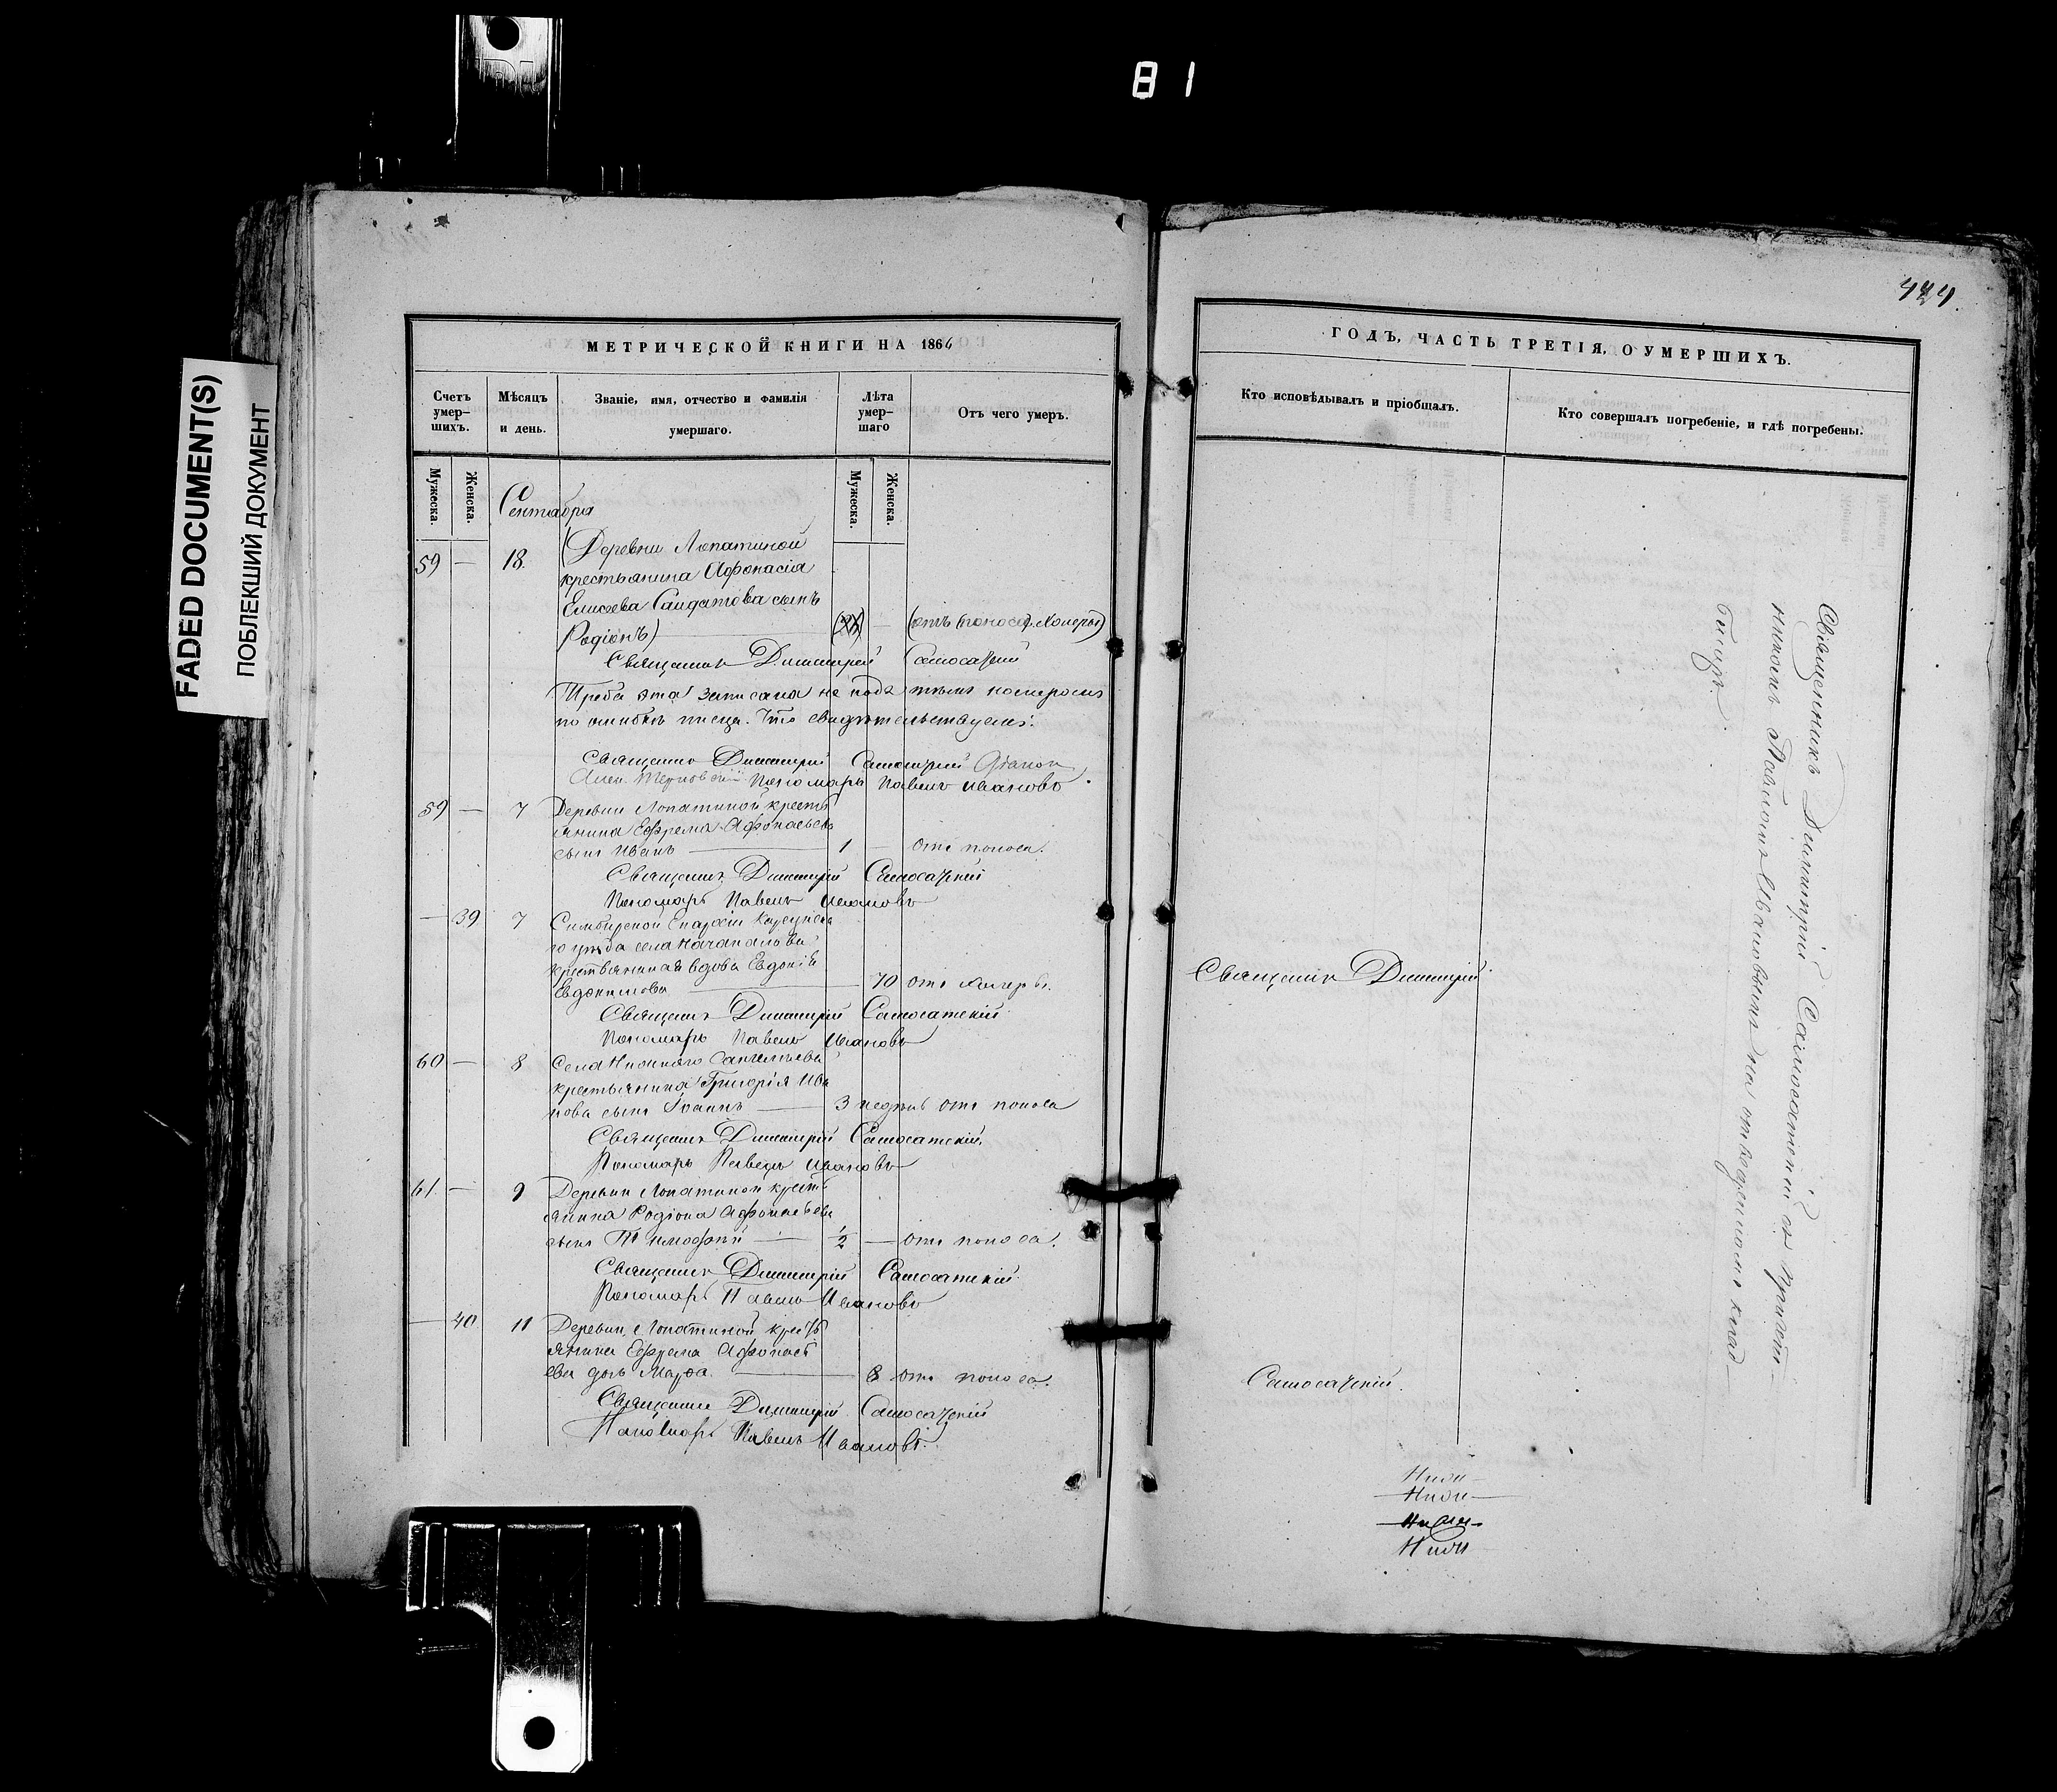 81
FADED DOCUMENT(S)
ПОБЛЕКШИЙ ДОКУМЕНТ
МЕТРИЧЕСКОЙ КНИГИ НА 1866
Счетъ умер-
шихъ.
Мѣсяцъ
и день.
Званіе, имя, отчество и фамилія
умершаго.
Лѣта
умер-
шаго
Отъ чего умеръ.
Мужеска.
Женска.
Мужеска.
Женска.
Сентабря
59 — 18. (Деревни Лопатиной
крестьянина Афонасія
Елисеева Солдатова сынъ
Родіонъ) — (отъ поноса, Холеры)
Священник Димитрій Самосатскій
Треба эта записана не подъ тѣмъ номеромъ
по ошибкѣ писца. Что свидѣтельствуемъ:
Священник Димитрій Самосатскій
Пономарь Павелъ Ивановъ
59 — 7 Деревни Лопатиной кресть
янина Ефрема Афонасьева
сынъ Иванъ — 1 — отъ поноса.
Священник Димитрій Самосатскій
Пономарь Павелъ Ивановъ
— 39 7 Симбирской Епархіи
уѣзда села
крестьянина вдова Евдокія
Евдокимова — 70 отъ холеры.
Священник Димитрій Самосатскій
Пономарь Павелъ Ивановъ
60 — 8 Села Нижняго
крестьянина Григорія Ива
нова сынъ Іоаннъ — 3 недѣль отъ поноса
Священник Димитрій Самосатскій.
Пономарь Павелъ Ивановъ
61 — 9 Деревни Лопатиной кресть
янина Родіона Афонасьева
сынъ Тимофѣй — 1/2 — отъ поноса.
Священник Димитрій Самосатскій
Пономарь Павелъ Ивановъ
— 40 11 Деревни Лопатиной кресть
янина Ефрема Афонась
ева дочь Марѳа. — 8 отъ поноса.
Священник Димитрій Самосатскій
Пономарь Павелъ Ивановъ.
ГОДЪ, ЧАСТЬ ТРЕТІЯ, О УМЕРШИХЪ.
Кто исповѣдывалъ и пріобщалъ.
Кто совершалъ погребеніе, и гдѣ погребены.
Священник Димитрій
Самосатскій.
Священникъ Димитрій Самосатскій съ причет-
никомъ Павломъ Ивановымъ на отведенномъ клад-
бищѣ.